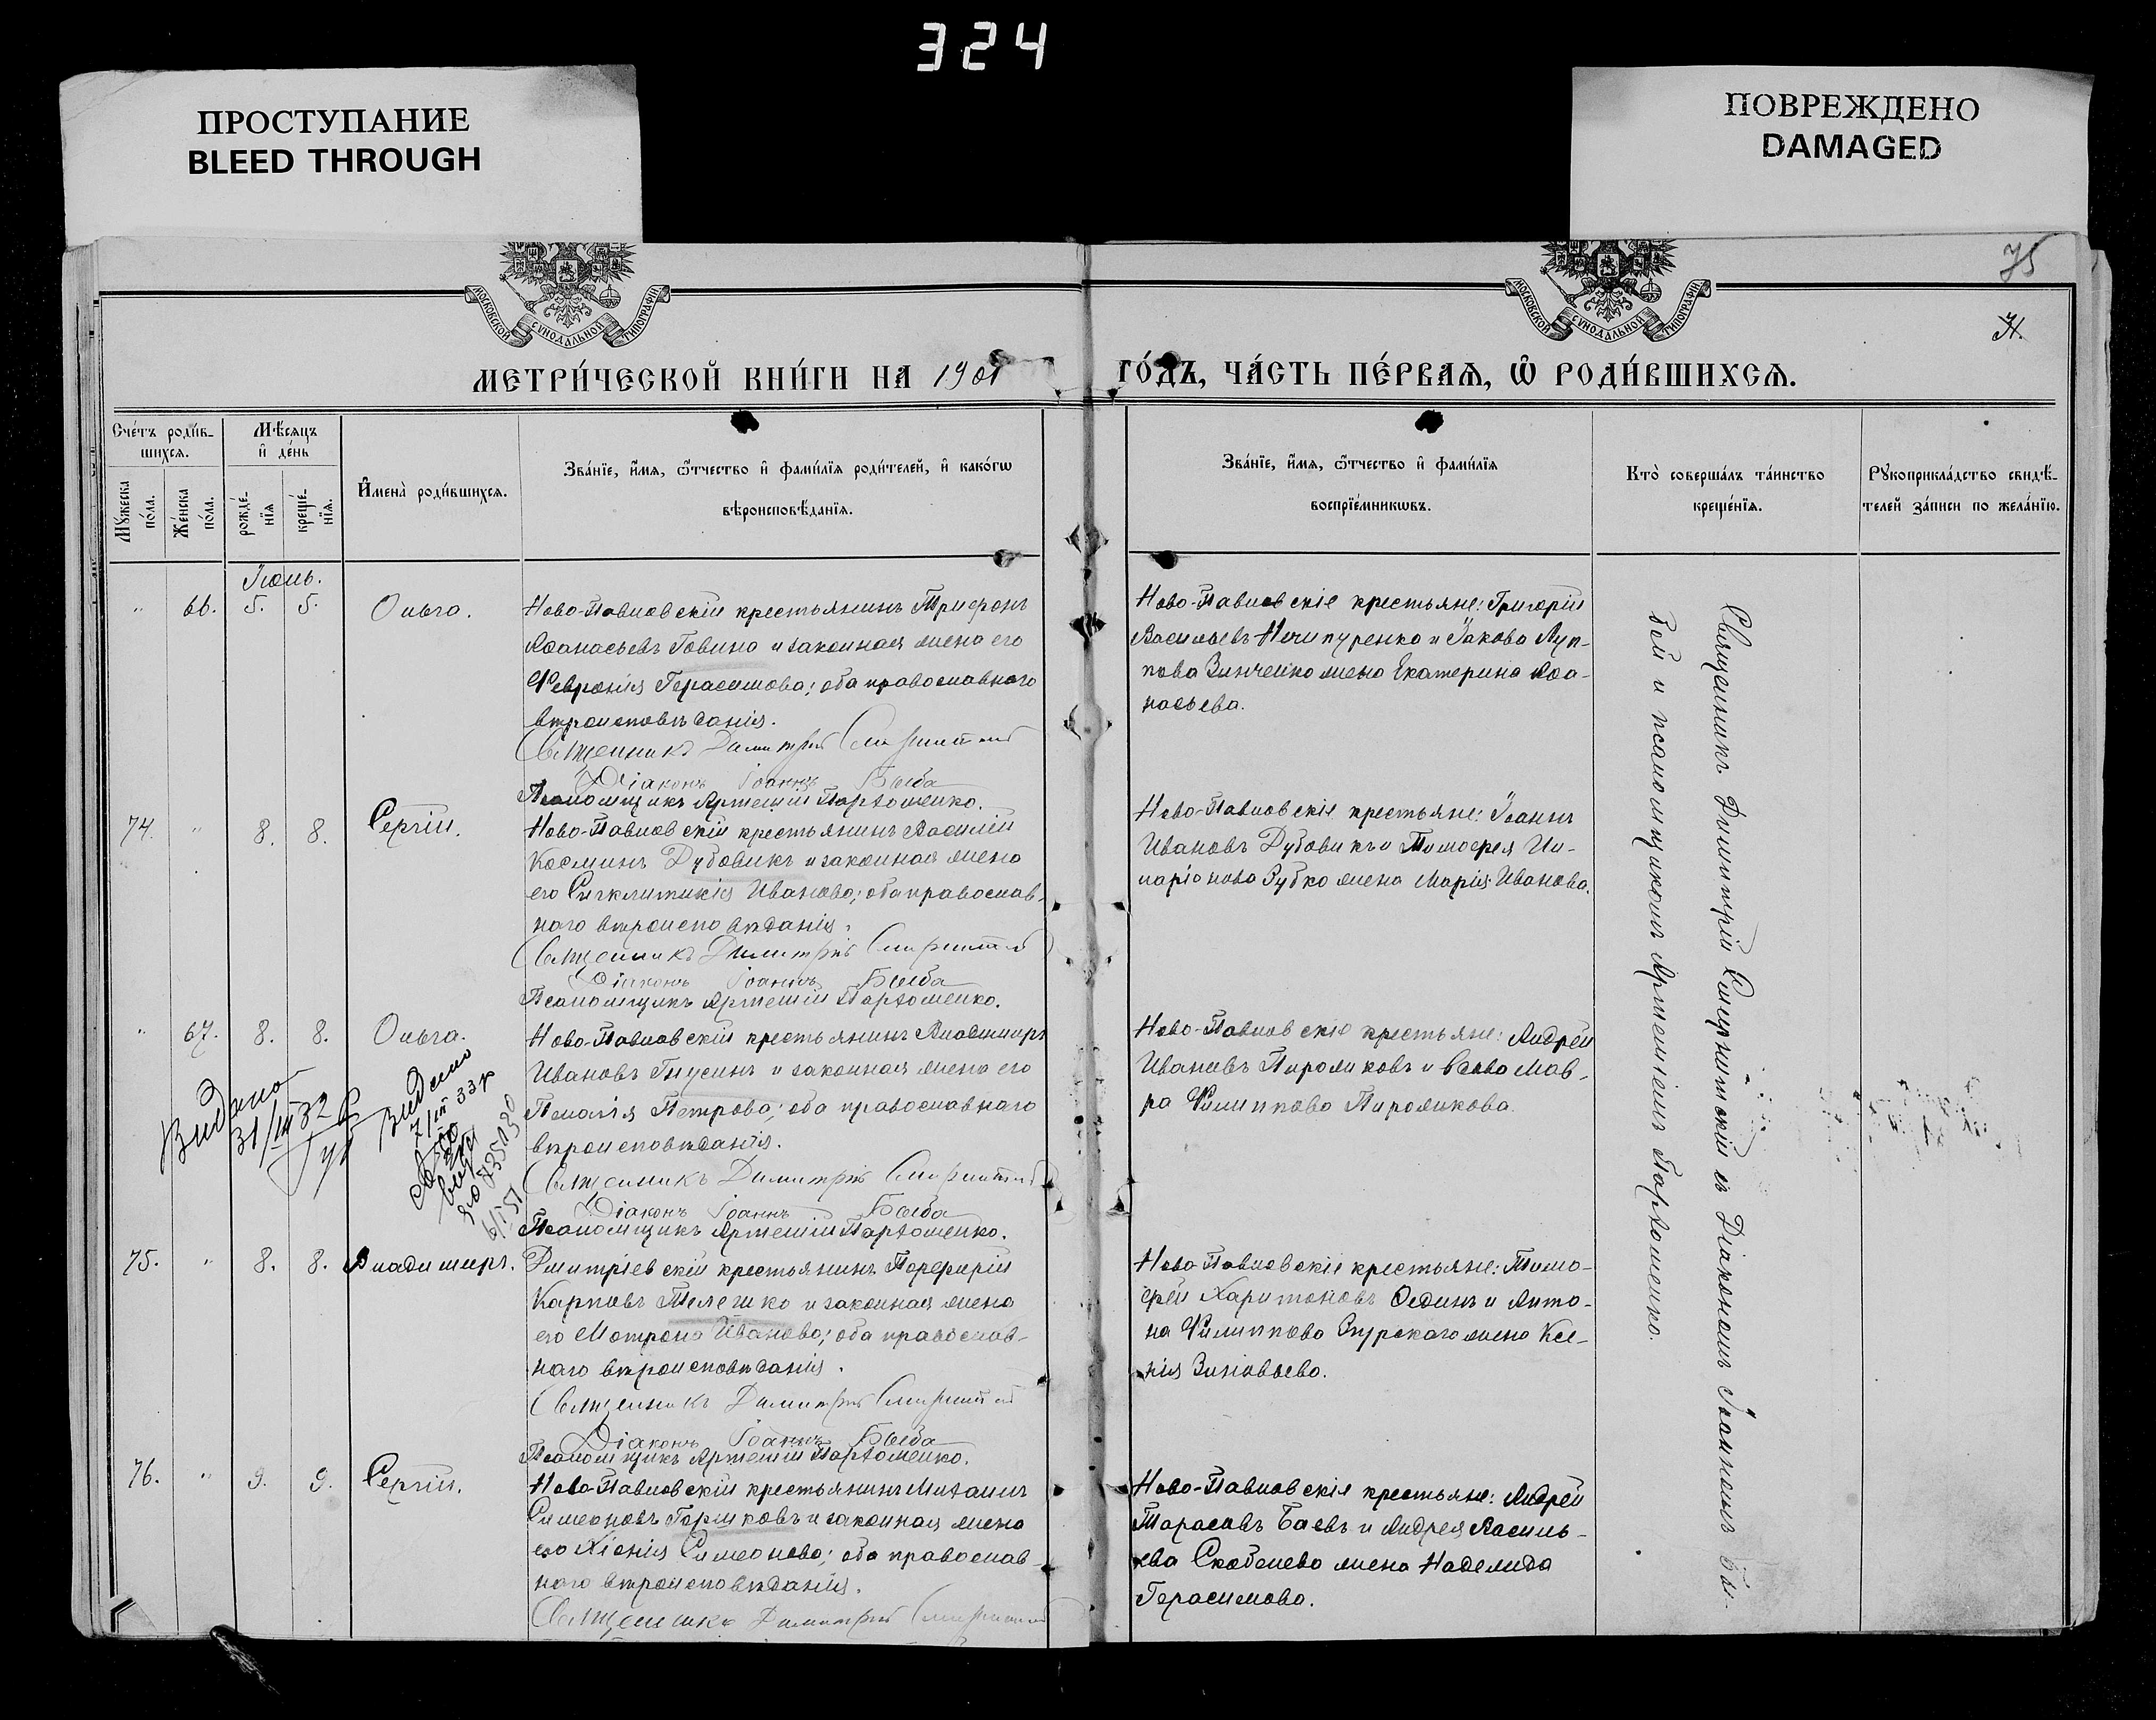 324
ПРОСТУПАНИЕ
BLEED THROUGH
ПОВРЕЖДЕНО
DAMAGED
МОСКОВСКОЙ СѴНОДАЛЬНОЙ ТИПОГРАФІИ
МОСКОВСКОЙ СѴНОДАЛЬНОЙ ТИПОГРАФІИ
75
МЕТРИ́ЧЕСКОЙ КНИ́ГИ НА 1901
ГО́ДЪ, ЧА́СТЬ ПЕ́РВАЯ, Ѡ РОДИ́ВШИХСЯ.
Счéтъ роди́в-
шихся.
Мꙋ́жеска по́ла.
Же́нска по́ла.
Мѣ́сяцъ
и҆ де́нь
рожде́-
нїя
креще́-
нїя.
И҆мена̀ роди́вшихся.
Зва́нїе, и҆́мя, ѻ҆́тчество и҆ фами́лїя роди́телей, и҆ како́гѡ
вѣроисповѣ́данїя.
Зва́нїе, и҆́мя, ѻ҆́тчество и҆ фами́лїя
воспрїе́мникѡвъ.
Кто̀ соверша́лъ та́инство
креще́нїя.
Рꙋкоприкла́дство свидѣ́-
телей за́писи по жела́нїю.
Іюнь.
" 66. 5. 5. Ольга.
Ново-Павловскій крестьянинъ Трифонъ
Аѳанасьевъ Говина и законная жена его
Февронія Герасимова; оба православнаго
вѣроисповѣданія.
Священникъ Димитрій
Діаконъ Іоаннъ Быба
Псаломщикъ Артемій Пархоменко.
Ново-Павловскіе крестьяне: Григорій
Васильевъ Ничипуренко и Іакова Луп-
пова Зинченко жена Екатерина Аѳа-
насьева.
74. " 8. 8. Сергій.
Ново-Павловскій крестьянинъ Василій
Косминъ Дубовикъ и законная жена
его Синклитикія Иванова; оба православ-
наго вѣроисповѣданія.
Священникъ Димитрій
Діаконъ Іоаннъ Быба
Псаломщикъ Артемій Пархоменко.
Ново-Павловскія крестьяне: Іоаннъ
Ивановъ Дубовикъ и Тимофея Ил-
ларіонова Зубко жена Марія Иванова.
" 67. 8. 8. Ольга.
Ново-Павловскій крестьянинъ Владиміръ
Ивановъ Гнусинъ и законная жена его
Пелагія Петрова; оба православнаго
вѣроисповѣданія.
Священникъ Димитрій
Діаконъ Іоаннъ Быба
Псаломщикъ Артемій Пархоменко.
Ново-Павловскіе крестьяне: Андрей
Ивановъ Пирожковъ и вдова Мав-
ра Филиппова Пирожкова.
Видано
31/III 32
Видано
7/III 33 р
75. " 8. 8. Владимиръ.
Дмитріевскій крестьянинъ Порфирій
Карповъ Телегико и законная жена
его Матрона Иванова; оба православ-
наго вѣроисповѣданія.
Священникъ Димитрій
Діаконъ Іоаннъ Быба
Псаломщикъ Артемій Пархоменко.
Ново-Павловскіе крестьяне: Тимо-
фей Харитоновъ Сединъ и Анто-
на Филиппова жена Ксе-
нія Зиновьева.
76. " 9. 9. Сергій.
Ново-Павловскій крестьянинъ Михаилъ
Симеоновъ Горшковъ и законная жена
его Хіонія Симеонова; оба православ-
наго вѣроисповѣданія.
Священникъ Димитрій
Ново-Павловскія крестьяне: Андрей
Тарасовъ Баевъ и Андрея Василь-
ева Скобелева жена Надежда
Герасимова.
Священникъ Димитрій съ Діакономъ Іоанномъ Бы-
бой и псаломщикомъ Артеміемъ Пархоменко.